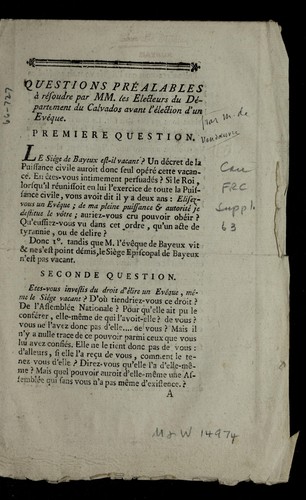 QUESTIONS PRÉALABLES
à résoudre par MM. les Electeurs du Dé-
partement du Calvados avant l'élection d'un
Evêque.
PREMIERE QUESTION.
LE Siége de Bayeux est-il vacant ? Un décret de la
Puissance civile auroit donc seul opéré cette vacan-
ce. En êtes-vous intimement persuadés ? Si le Roi,
lorsqu'il réunissoit en lui l'exercice de toute la Puis-
sance civile, vous avoit dit il y a deux ans : Elisez-
vous un Evêque ; de ma pleine puissance & autorité je
destitue le vôtre ; auriez-vous cru pouvoir obéir ?
Qu'eussiez-vous vu dans cet ordre, qu'un acte de
tyrannie, ou de délire ?
Donc 1°. tandis que M. l'évêque de Bayeux vit
& ne s'est point démis, le Siége Episcopal de Bayeux
n'est pas vacant.
SECONDE QUESTION.
Etes-vous investis du droit d'élire un Evêque, mê-
me le Siége vacant ? D'où tiendriez-vous ce droit ?
De l'Assemblée Nationale ? Pour qu'elle ait pu le
conférer, elle-même de qui l'avoit-elle ? de vous ?
vous ne l'avez donc pas d'elle.... de vous ? Mais il
n'y a nulle trace de ce pouvoir parmi ceux que vous
lui avez confiés. Elle ne le tient donc pas de vous :
d'ailleurs, si elle l'a reçu de vous, comment le te-
nez vous d'elle ? Direz-vous qu'elle l'a d'elle-mê-
me ? Mais quel pouvoir auroit d'elle-même une As-
semblée qui sans vous n'a pas même d'existence ?
A
66-727
par m. de
Case
FRC
Suppl.
63
M & W 14974